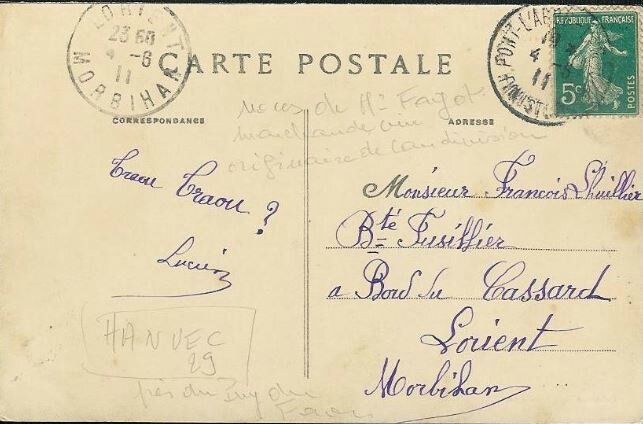 LORIENT
23 60
4 - 6
11
MORBIHAN
CARTE POSTALE
PONT-L'AB
4 - 6
11
FINIST
REPUBLIQUE FRANÇAISE
5c
POSTES
CORRESPONDANCE
ADRESSE
noces de Mr Fayot
marchande
originaire de
Traou Traou ?
Lucien
Monsieur François Lhuillier
Bté Fusillier
a Bord du Cassard
Lorient
Morbihan
HANVEC
29
près du
Faou